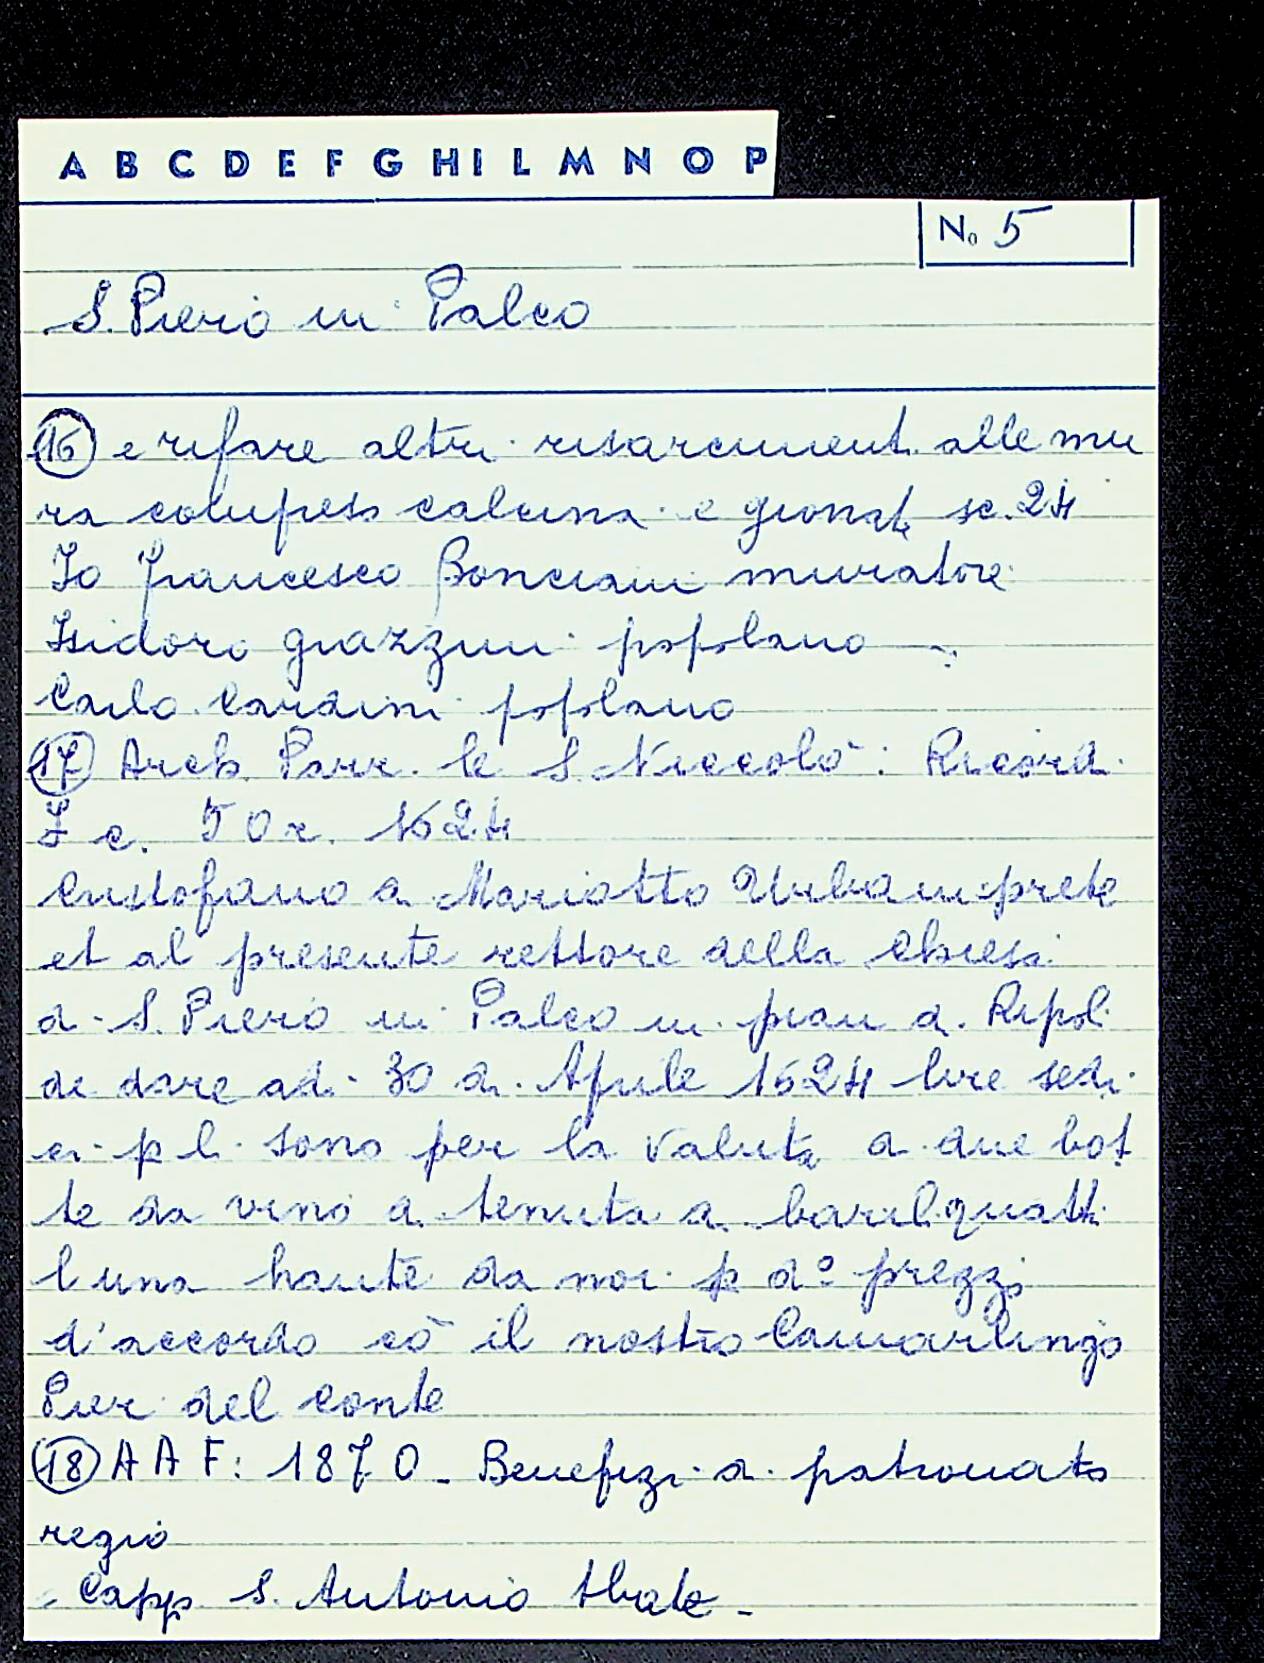 A B C D E F G H I L M N O P
No 5
S. Piero in Palco
16 e rifare altri risarciment. alle mu
ra compreso calcina e gionate sc. 24
Io Francesco Bonciani muratore
Isidoro grazzini popolano
Carlo Cardini popolano
17 Arch. Parr. le S. Niccolò: Ricord.
I c. 50 r. 1624
Cristofano di Mariotto Urbani prete
et al presente rettore della Chiesa
di S. Piero in Palco in pian di Ripoli
de dare adi 30 di Aprile 1624 lire sedi
ci p l. sono per la valuta di due bot
te da vino di tenuta di barili quatt.
l una haute da noi p do prezzi
d'accordo cō il nostro Camarlingo
Pier del conte
18 A A F: 1870 - Benefizi di patronato
regio
Capp S. Antonio Abate -